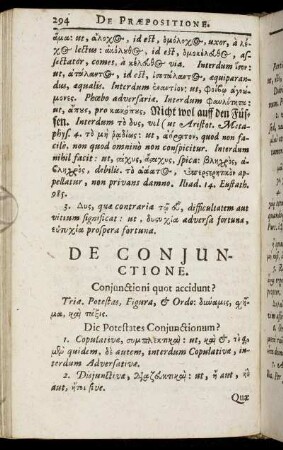 294 DE PRÆPOSITIONE.
ἅμα: ut, ἄλοχος, id est, ὁμόλοχος, uxor, à λέ-
χος lectus: ἀκόλουθος, id est, ὁμοκέλευθος, as-
sectator, comes, à κέλευθος via. Interdum ἴσον:
ut, ἀτάλαντος, id est, ἰσοτάλαντος, æquiparan-
dus, æqualis. Interdum ἐναντίον: ut, Φοίβῳ
Phœbo adversaria. Interdum φαυλότητα:
ut, pro Nicht wol auf den Füs-
sen. Interdum τὸ δυς, uti ut Aristot. Meta-
phys. 4. τὸ μὴ ῥᾳδίως: ut, ἀόρατον, quod non fa-
cile, non quod omninò non conspicitur. Interdum
nihil facit: ut, στάχυς, ἄσταχυς, spica: βληχρὸς,
ἀβληχρὸς, debilis. τὸ ap-
pellatur, non privans damno. Iliad. 14. Eustath.
985.
3. Δυς, quæ contraria τῷ εὖ, difficultatem aut
vitium significat: ut, δυστυχία adversa fortuna,
εὐτυχία prospera fortuna.
DE CONJUN-
CTIONE.
Conjunctioni quot accidunt?
Tria. Potestas, Figura, & Ordo: δύναμις, σχῆ-
μα, καὶ τάξις.
Dic Potestates Conjunctionum?
1. Copulativa, συμπλεκτικαὶ: ut, καὶ &, τὸ
μὲν quidem, δὲ autem, interdum Copulativa, in-
terdum Adversativa.
2. Disjunctiva, διαζευκτικαὶ: ut, ἢ aut,
aut, ἤτοι sive.
Quæ